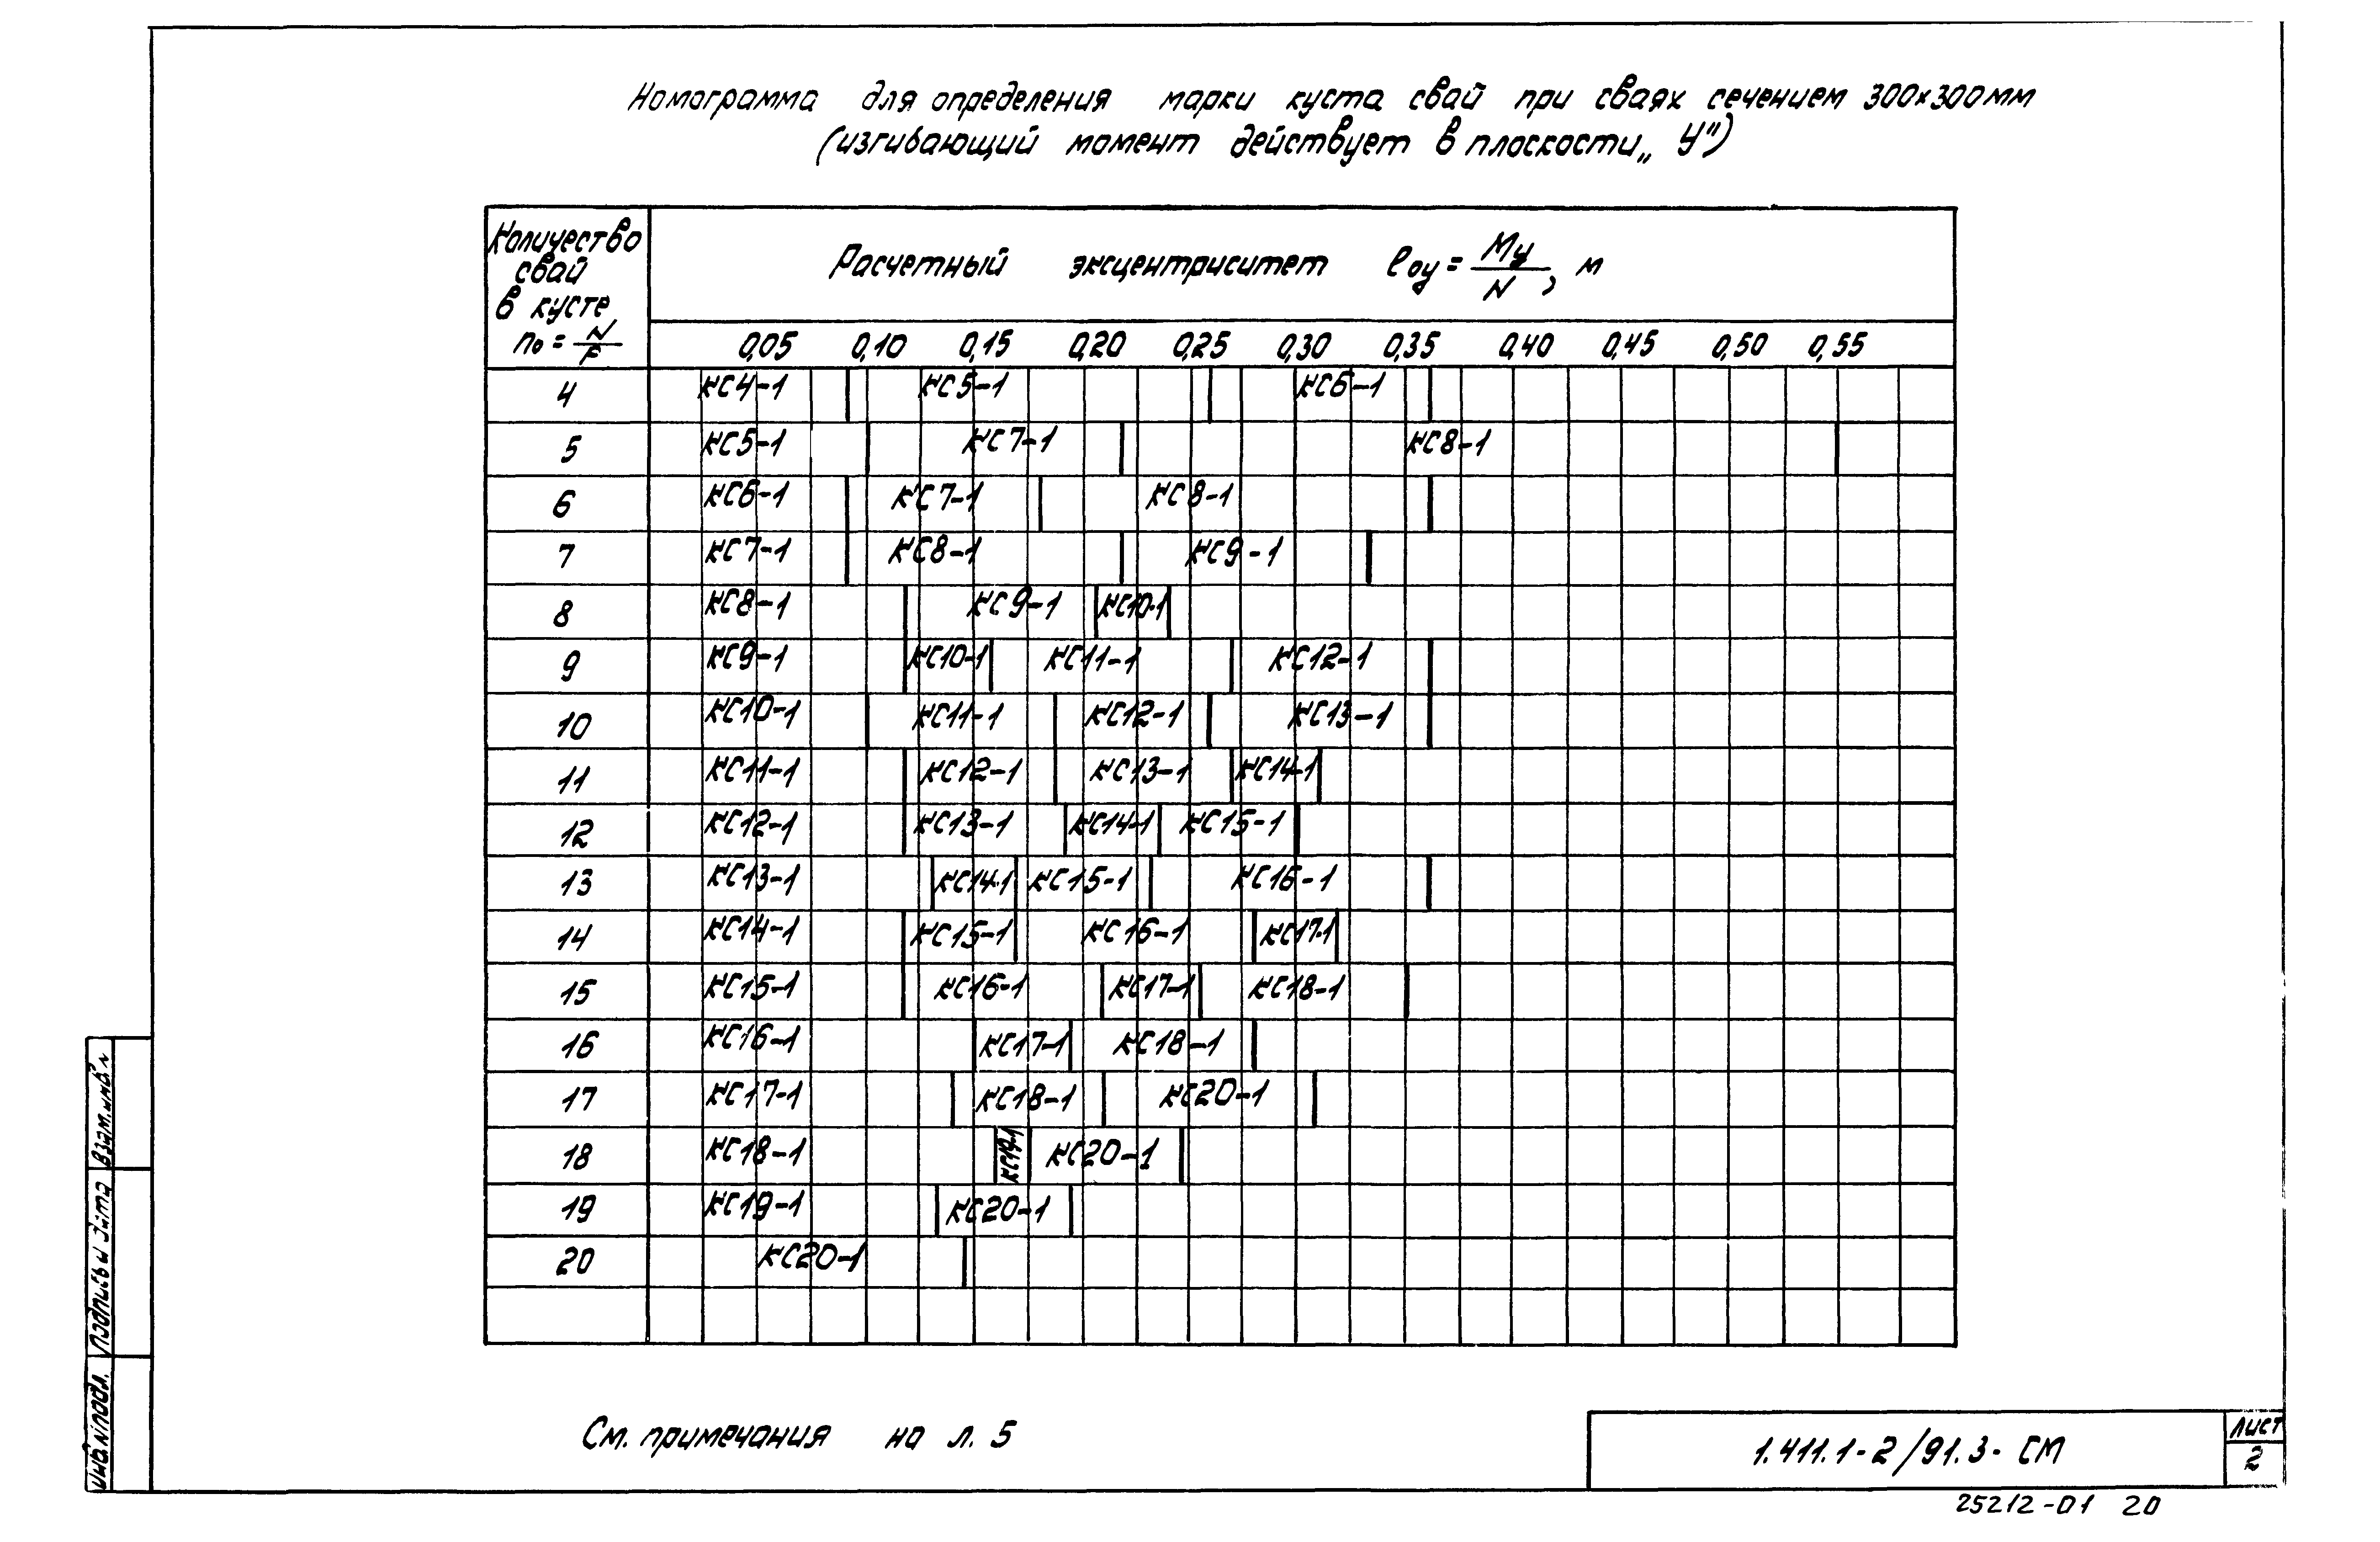 Номограмма для определения марки куста свай при сваях сечением 300×300мм
(изгибающий момент действует в плоскости „У")
Количество свай в кусте n₀ = N/F
Расчетный эксцентриситет e₀y = My/N, м
0,05 0,10 0,15 0,20 0,25 0,30 0,35 0,40 0,45 0,50 0,55
4 КС4-1 КС5-1 КС6-1
5 КС5-1 КС7-1 КС8-1
6 КС6-1 КС7-1 КС8-1
7 КС7-1 КС8-1 КС9-1
8 КС8-1 КС9-1 КС10-1
9 КС9-1 КС10-1 КС11-1 КС12-1
10 КС10-1 КС11-1 КС12-1 КС13-1
11 КС11-1 КС12-1 КС13-1 КС14-1
12 КС12-1 КС13-1 КС14-1 КС15-1
13 КС13-1 КС14-1 КС15-1 КС16-1
14 КС14-1 КС15-1 КС16-1 КС17-1
15 КС15-1 КС16-1 КС17-1 КС18-1
16 КС16-1 КС17-1 КС18-1
17 КС17-1 КС18-1 КС20-1
18 КС18-1 КС19-1 КС20-1
19 КС19-1 КС20-1
20 КС20-1
См. примечания на л. 5
1.411.1-2/91.3-СМ
Лист
2
25212-01 20
Инв.№подл.
Подпись и дата
Взам.инв.№